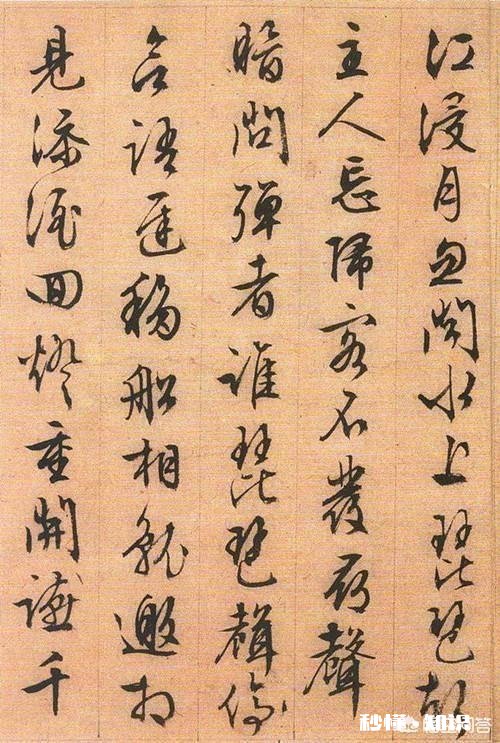 江浸月忽聞水上琵琶聲
主人忘歸客不發尋聲
暗問彈者誰琵琶聲停
欲語遲移船相就邀相
見添酒回燈重開讌千
秒懂 知识